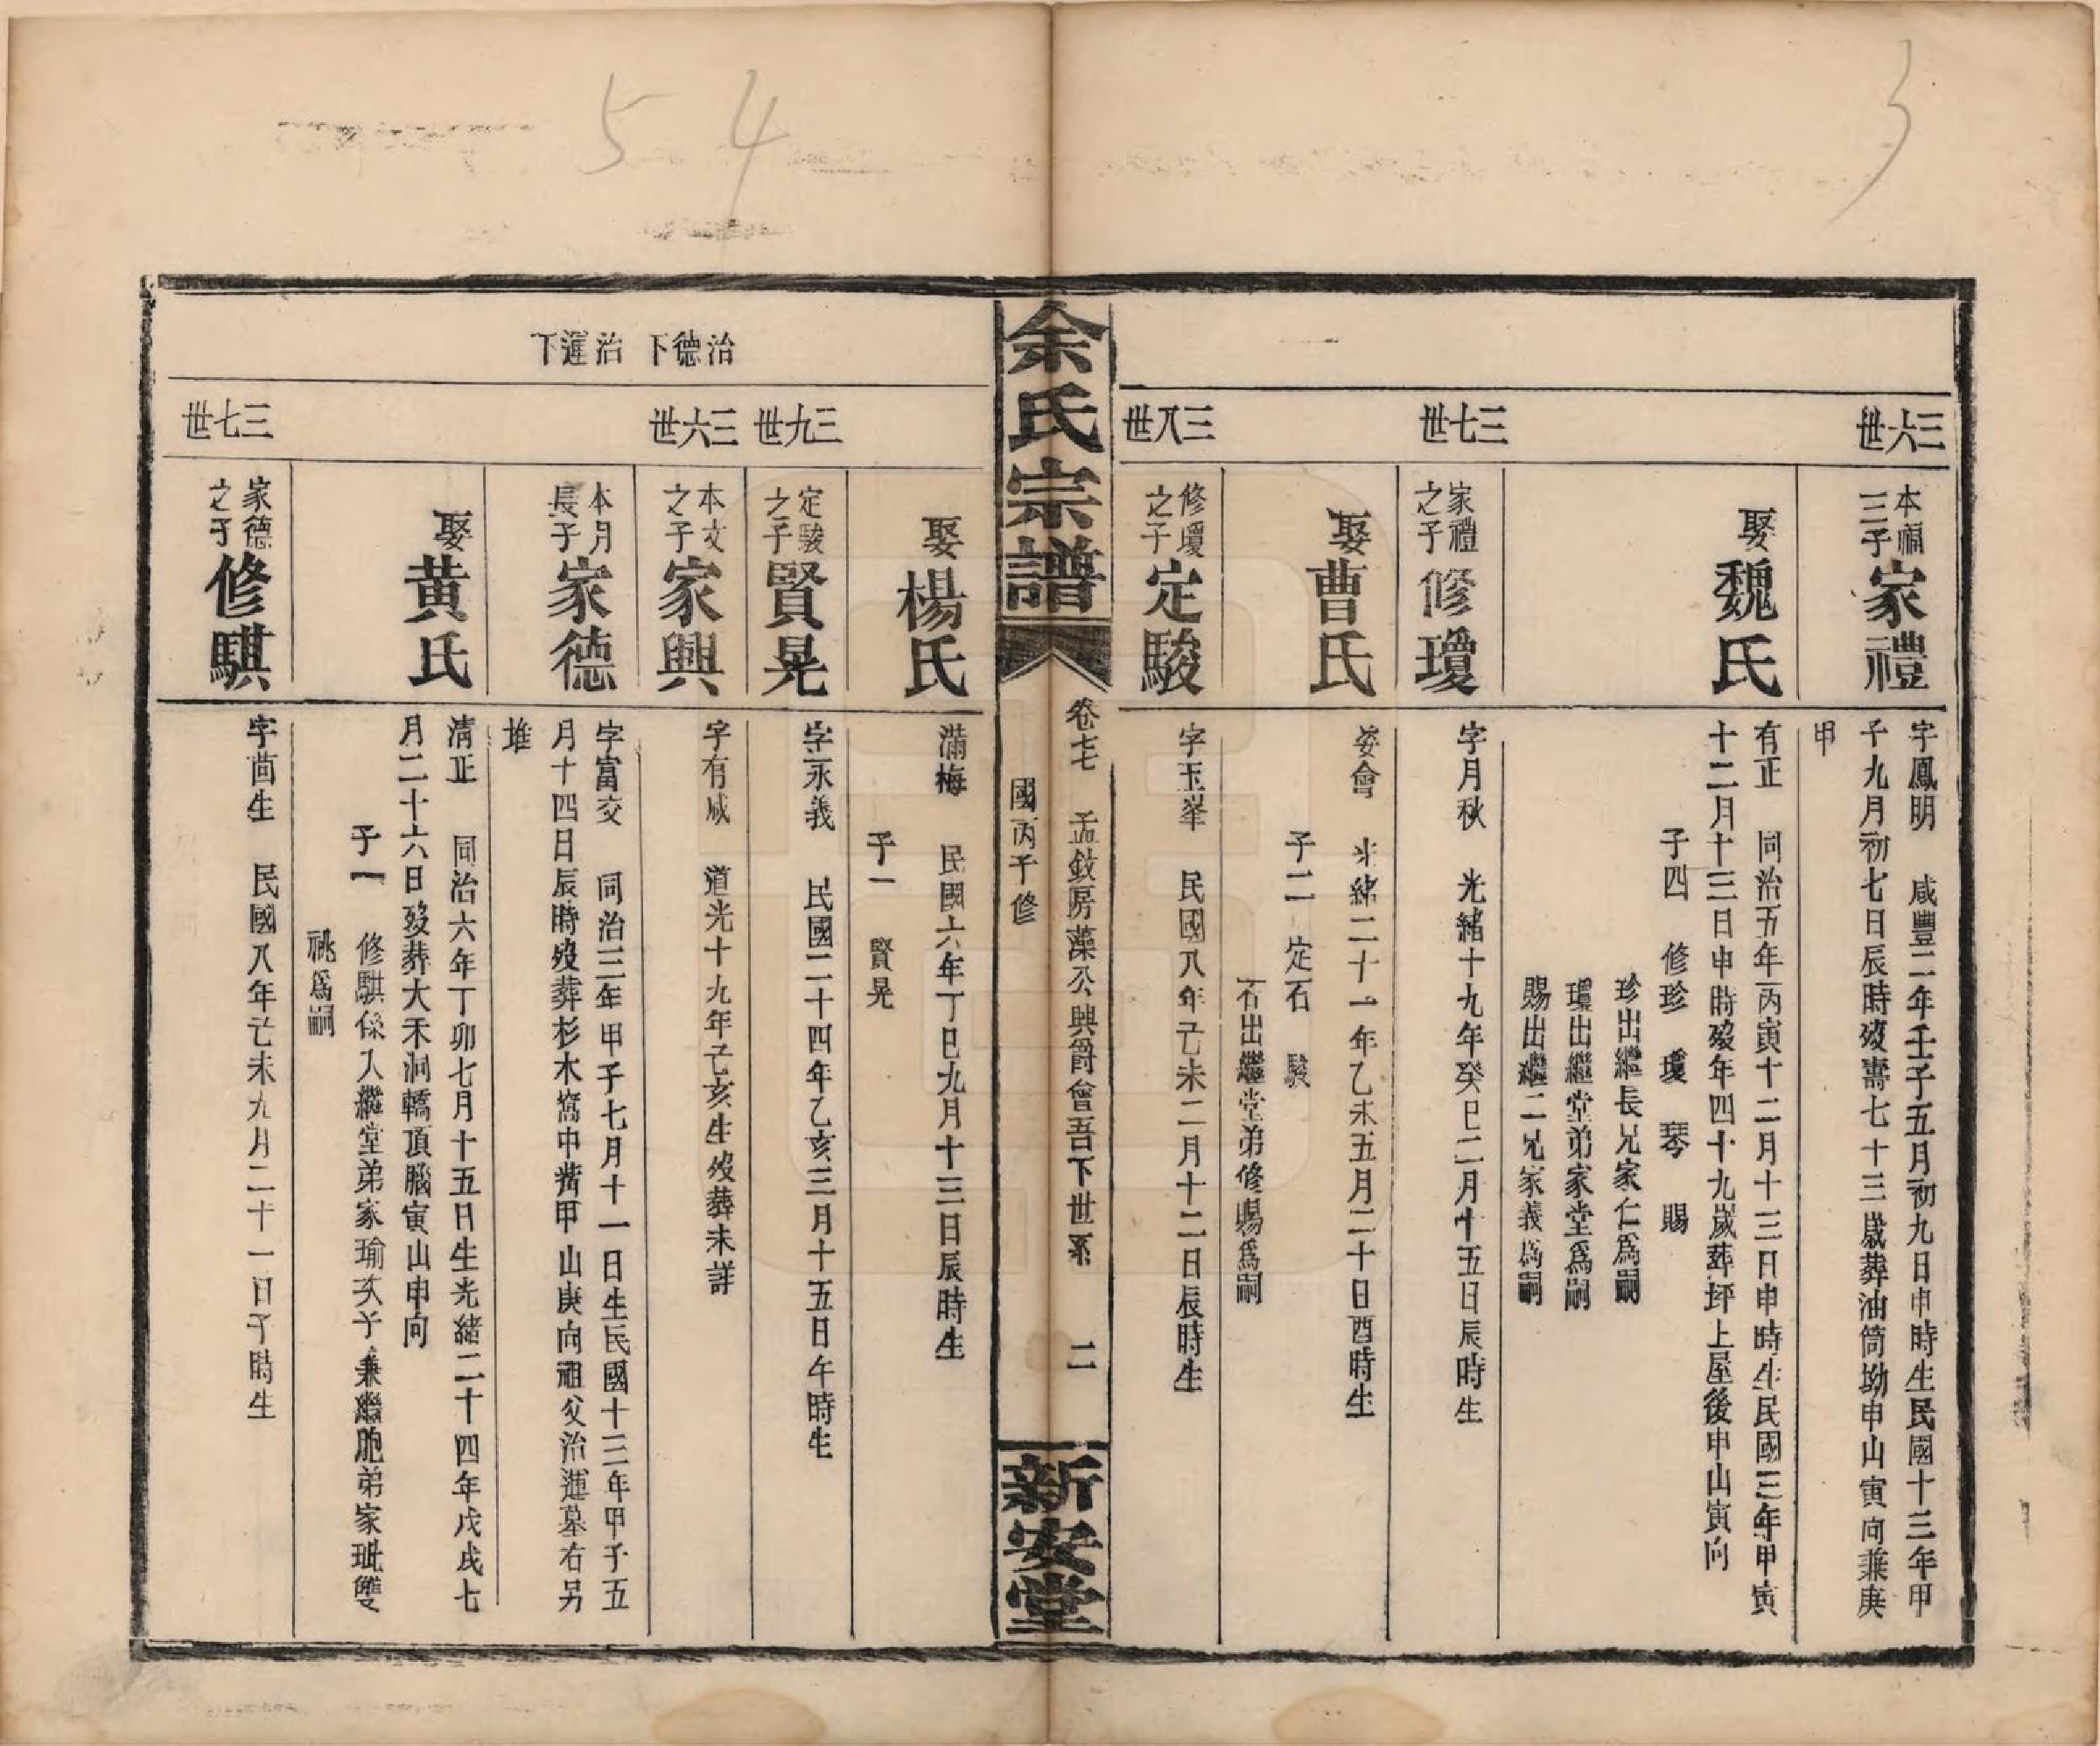 3
三六世
本福
三子
家禮
字鳳明　咸豐二年壬子五月初九日申時生民國十三年甲
子九月初七日辰時歿壽七十三歲葬油筒坳申山寅向兼庚
甲
娶魏氏
有正　同治五年丙寅十二月十三日申時生民國三年甲寅
十二月十三日申時歿年四十九歲葬坪上屋後申山寅向
子四　修珍　瓊　琴　賜
珍出繼長兄家仁爲嗣
環出繼堂弟家堂爲嗣
賜出繼二兄家義爲嗣
三七世
家禮
之子
修瓊
字月秋　光緒十九年癸巳二月十五日辰時生
娶曹氏
姿會　光緒二十一年乙未五月二十日酉時生
子二　定石　駿
石出繼堂弟修賜爲嗣
三八世
修瓊
之子
定駿
字玉峯　民國八年己未二月十二日辰時生
余氏宗譜
卷七　孟敨房藻公興爵會吾下世系　二
國丙子修
新安堂
5 4
娶楊氏
滿梅　民國六年丁巳九月十三日辰時生
子一　賢晃
三九世
定駿
之子
賢晃
字永義　民國二十四年乙亥三月十五日午時生
治德下
三六世
本文
之子
家興
字有咸　道光十九年己亥生歿葬未詳
治運下
本月
長子
家德
字富交　同治三年甲子七月十一日生民國十三年甲子五
月十四日辰時歿葬杉木窩中嘴甲山庚向祖父治運墓右另
堆
娶黃氏
清正　同治六年丁卯七月十五日生光緒二十四年戊戌七
月二十六日歿葬大禾洞轎頂腦寅山申向
子一　修騏係入繼堂弟家瑜次子兼繼胞弟家玼雙
祧爲嗣
三七世
家德
之子
修騏
字茴生　民國八年己未九月二十一日子時生